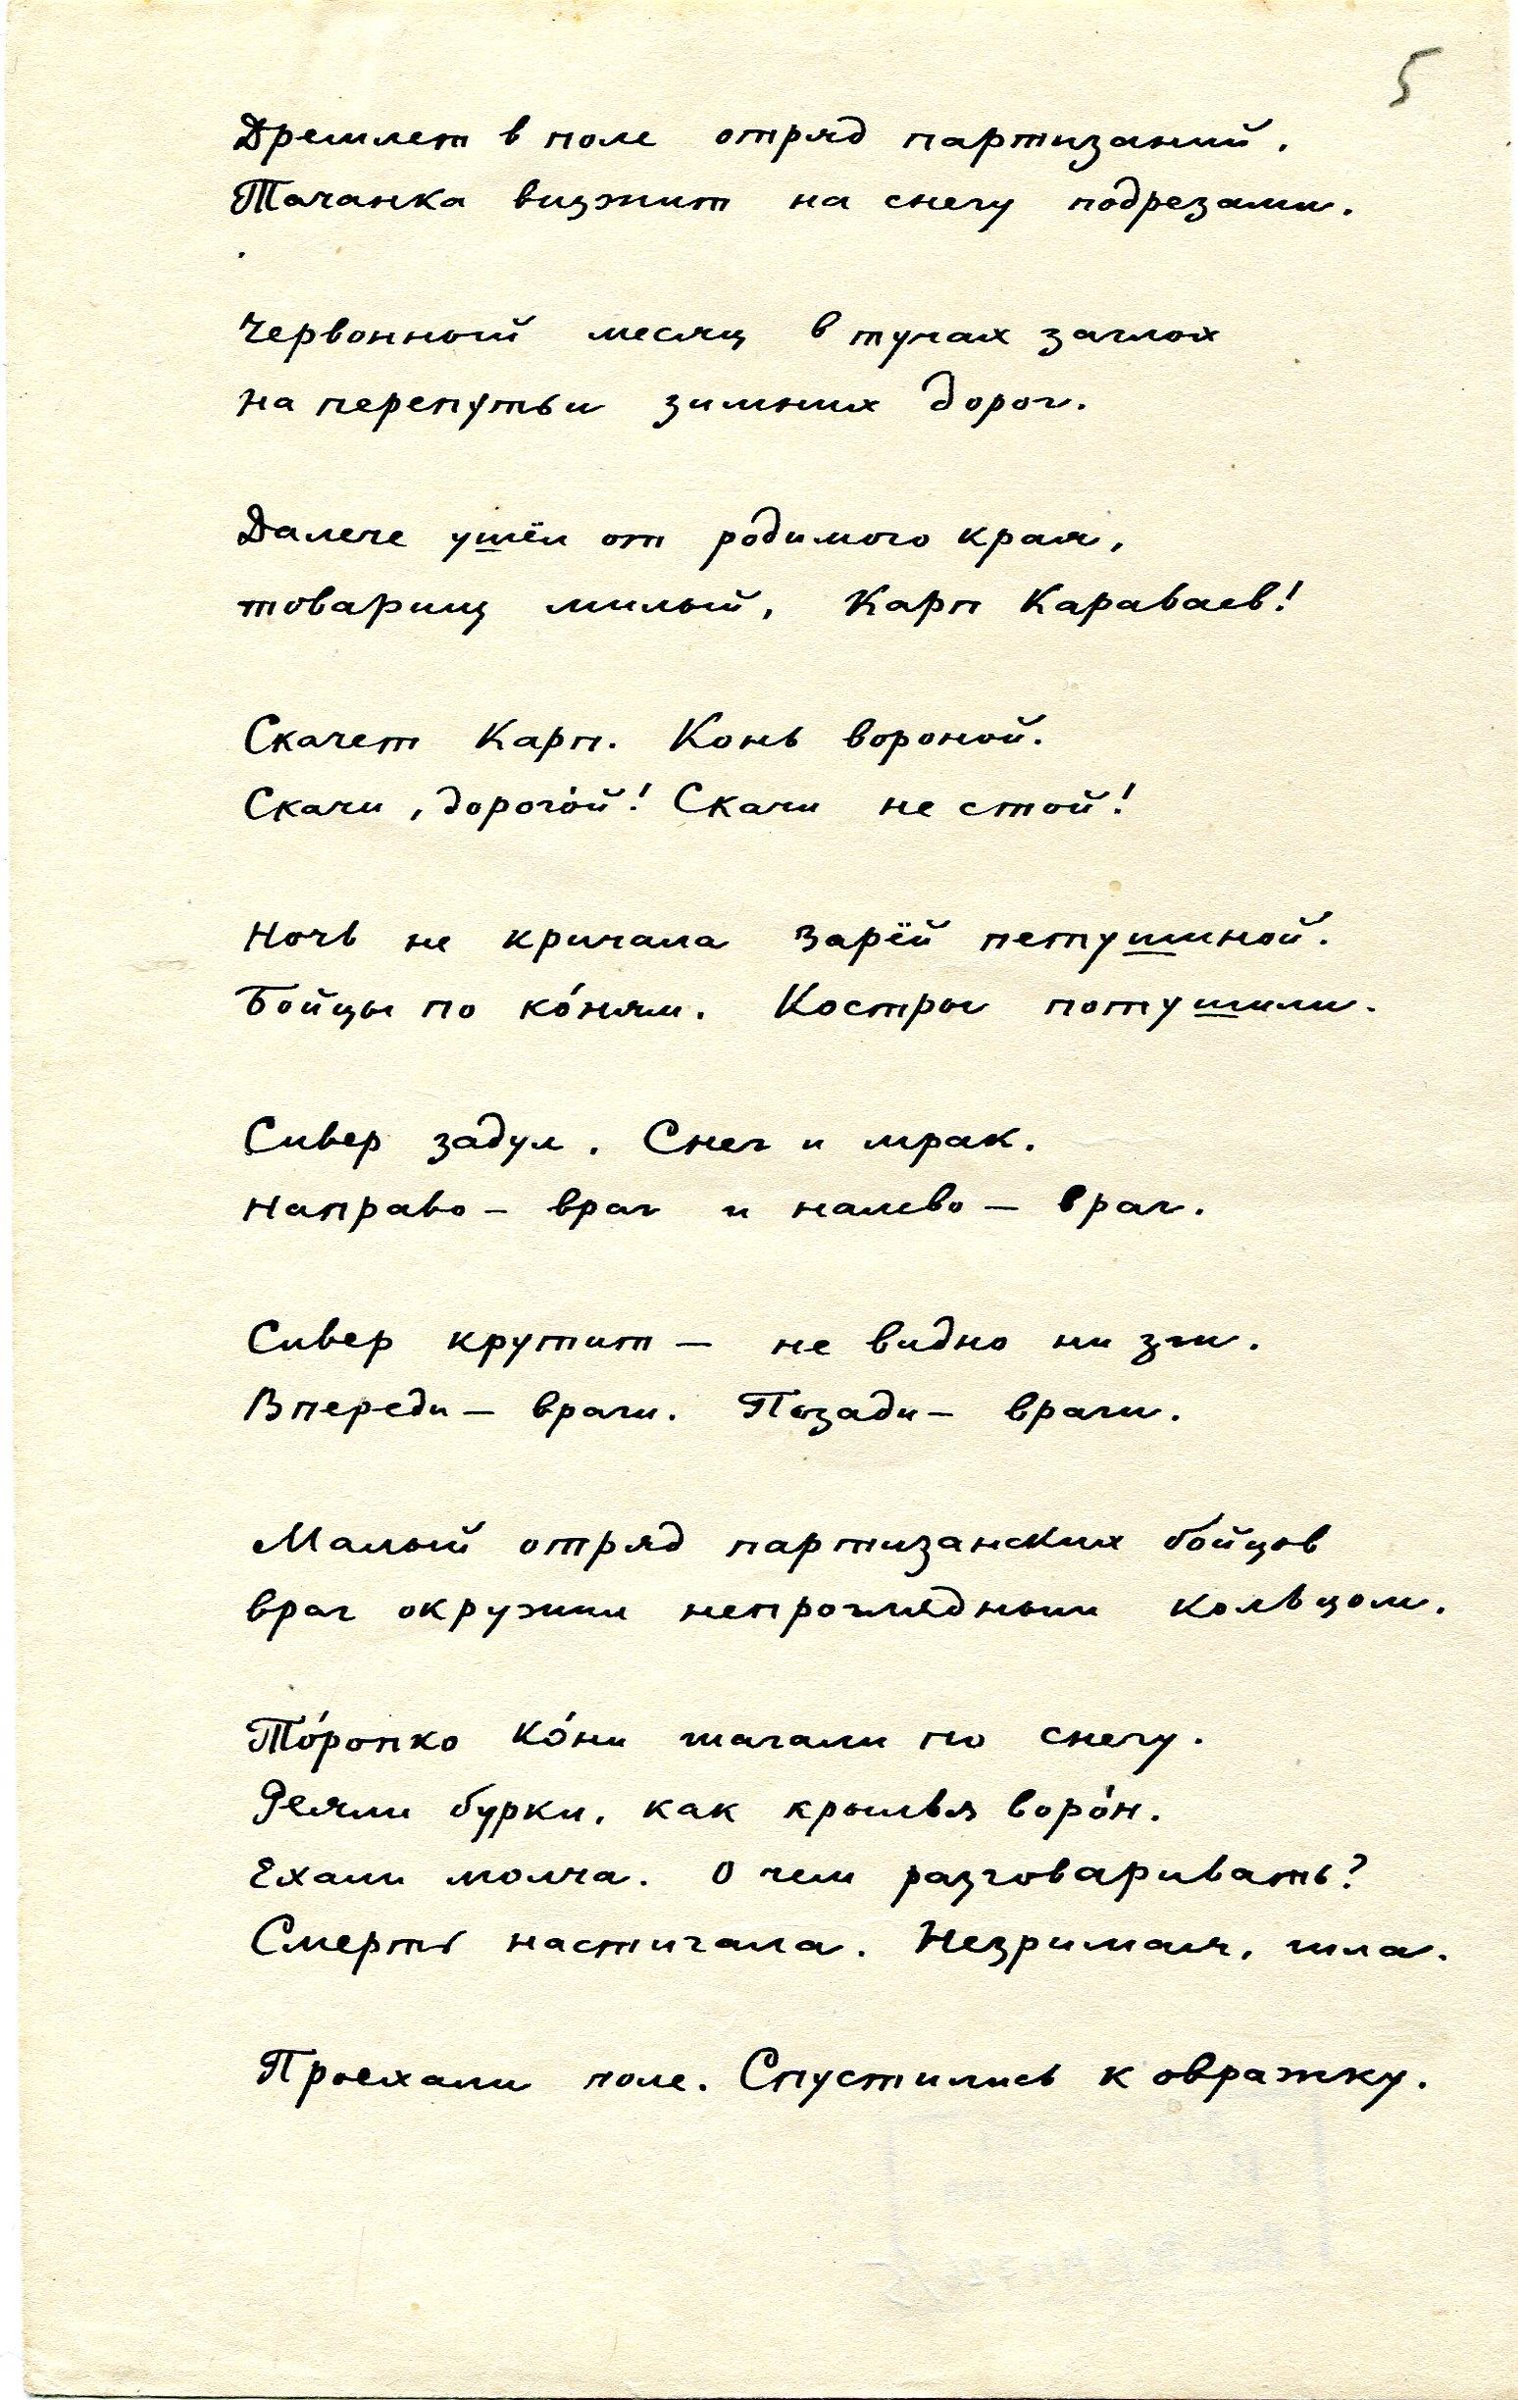 5
Дремлет в поле отряд партизаний.
Тачанка визжит на снегу подрезами.
Червонный месяц в тучах заглох
на перепутьи зимних дорог.
Далече ушёл от родимого края,
товарищ милый, Карп Караваев!
Скачет Карп. Конь вороной.
Скачи, дорогой! Скачи не стой!
Ночь не кричала зарёй петушиной.
Бойцы по ко́ням. Костры потушили.
Сивер задул. Снег и мрак.
Направо – враг и налево – враг.
Сивер крутит – не видно ни зги.
Впереди – враги. Позади – враги.
Малый отряд партизанских бойцов
враг окружил непроглядным кольцом.
То́ропко ко́ни шагали по снегу.
Реяли бурки, как крылья воро́н.
Ехали молча. О чем разговаривать?
Смерть настигала. Незримая, шла.
Проехали поле. Спустились к овражку.